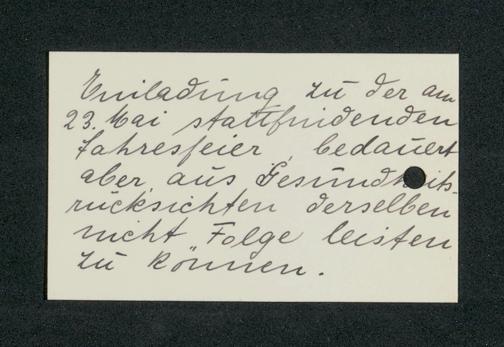 Einladung zu der am
23. Mai stattfindenden
Jahresfeier, bedauert
aber, aus Gesundheits-
rücksichten derselben
nicht Folge leisten
zu können.